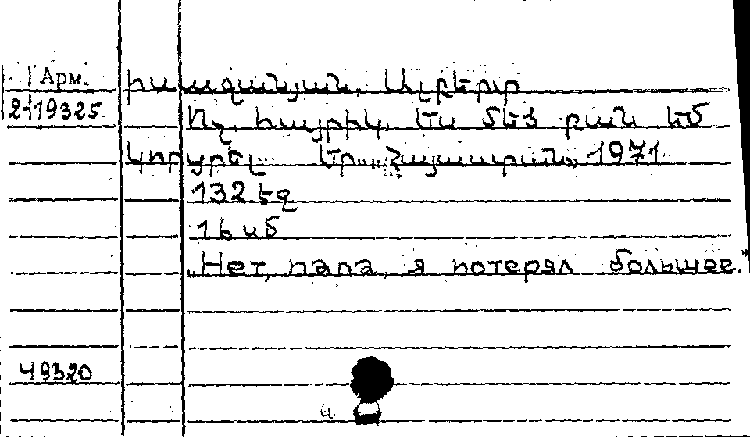 Арм.
Խաչազանյան, Ալբերտ
2-19325
Ոչ, հայրիկ, ես մեծ բան եմ
կորցրել Եր. „Հայաստան„ 1971
132 էջ
1 ե ս մ
„Нет, папа, я потерял большее."
49320